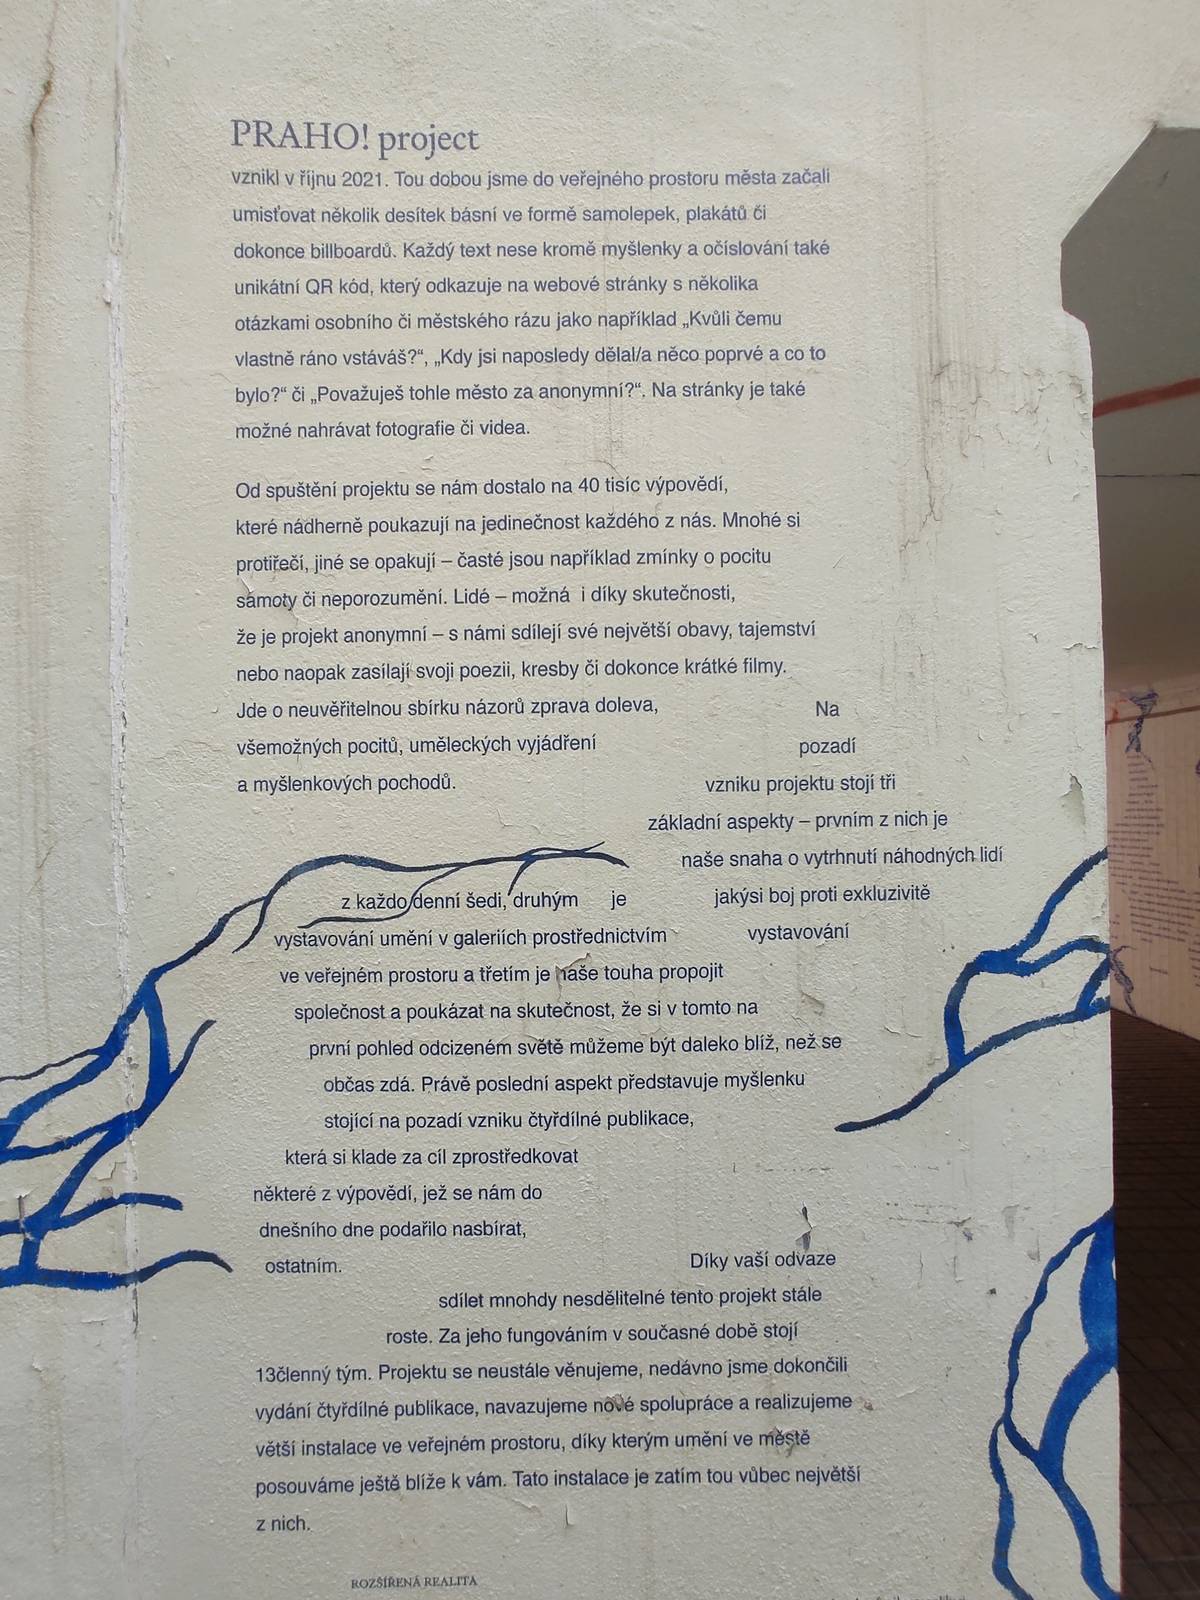 PRAHO! project
vznikl v říjnu 2021. Tou dobou jsme do veřejného prostoru města začali
umisťovat několik desítek básní ve formě samolepek, plakátů či
dokonce billboardů. Každý text nese kromě myšlenky a očíslování také
unikátní QR kód, který odkazuje na webové stránky s několika
otázkami osobního či městského rázu jako například „Kvůli čemu
vlastně ráno vstáváš?“, „Kdy jsi naposledy dělal/a něco poprvé a co to
bylo?“ či „Považuješ tohle město za anonymní?“. Na stránky je také
možné nahrávat fotografie či videa.
Od spuštění projektu se nám dostalo na 40 tisíc výpovědí,
které nádherně poukazují na jedinečnost každého z nás. Mnohé si
protiřečí, jiné se opakují – časté jsou například zmínky o pocitu
samoty či neporozumění. Lidé – možná i díky skutečnosti,
že je projekt anonymní – s námi sdílejí své největší obavy, tajemství
nebo naopak zasílají svoji poezii, kresby či dokonce krátké filmy.
Jde o neuvěřitelnou sbírku názorů zprava doleva,
všemožných pocitů, uměleckých vyjádření
a myšlenkových pochodů.
Na
pozadí
vzniku projektu stojí tři
základní aspekty – prvním z nich je
naše snaha o vytrhnutí náhodných lidí
z každo denní šedi, druhým je
jakýsi boj proti exkluzivitě
vystavování
vystavování umění v galeriích prostřednictvím
ve veřejném prostoru a třetím je naše touha propojit
společnost a poukázat na skutečnost, že si v tomto na
první pohled odcizeném světě můžeme být daleko blíž, než se
občas zdá. Právě poslední aspekt představuje myšlenku
stojící na pozadí vzniku čtyřdílné publikace,
která si klade za cíl zprostředkovat
některé z výpovědí, jež se nám do
dnešního dne podařilo nasbírat,
ostatním.
Díky vaší odvaze
sdílet mnohdy nesdělitelné tento projekt stále
roste. Za jeho fungováním v současné době stojí
13členný tým. Projektu se neustále věnujeme, nedávno jsme dokončili
vydání čtyřdílné publikace, navazujeme nové spolupráce a realizujeme
větší instalace ve veřejném prostoru, díky kterým umění ve městě
posouváme ještě blíže k vám. Tato instalace je zatím tou vůbec největší
z nich.
ROZŠÍŘENÁ REALITA